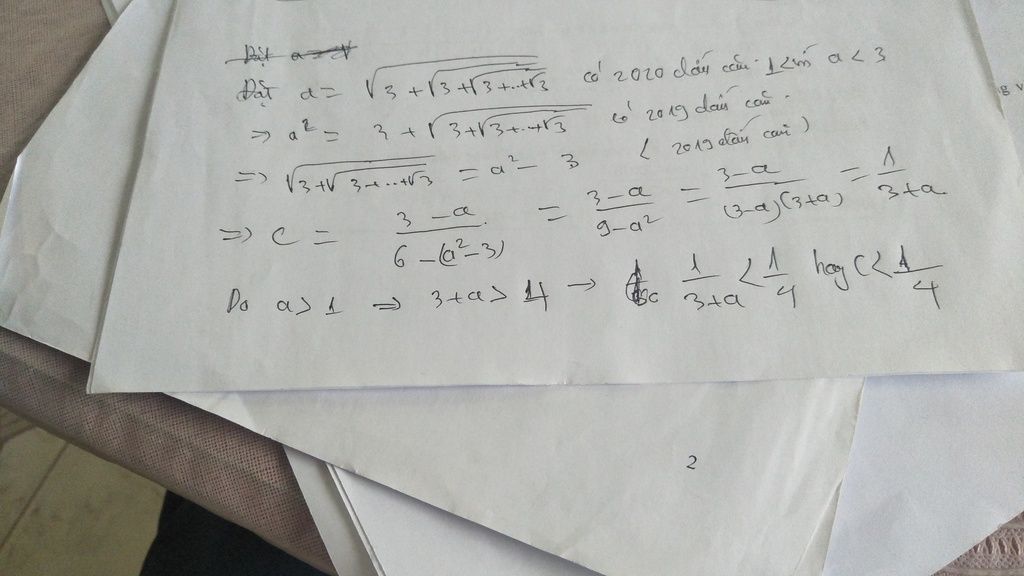 Đặt a = √
Đặt a = √(3+√(3+√(3+..+√3))) có 2020 dấu căn. 1< a < 3
⇒ a² = 3 + √(3+√(3+..+√3)) có 2019 dấu căn.
⇒ √(3+√(3+...+√3)) = a² - 3 ( 2019 dấu căn )
⇒ C = (3 - a)/(6 - (a² - 3)) = (3-a)/(9-a²) = (3-a)/((3-a)(3+a)) = 1/(3+a)
Do a > 1 ⇒ 3+a > 4 → 1/(3+a) < 1/4 hay C < 1/4
2